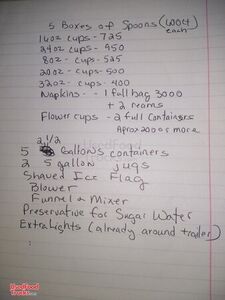 5 Boxes of Spoons (400ct
each)
14oz cups - 725
24oz cups - 950
8oz cups - 525
20oz cups - 500
32oz cups - 400
Napkins - - 1 full bag 3000
+ 2 reams
Flower cups - 2 full containers
Aprox 2000 or more
2 1/2
5 Gallons containers
2 5 gallon jugs
Shaved Ice Flag
Blower
Funnel & Mixer
Preservative for Sugar Water
Extra Lights (already around trailer)
UsedFood
Trucks